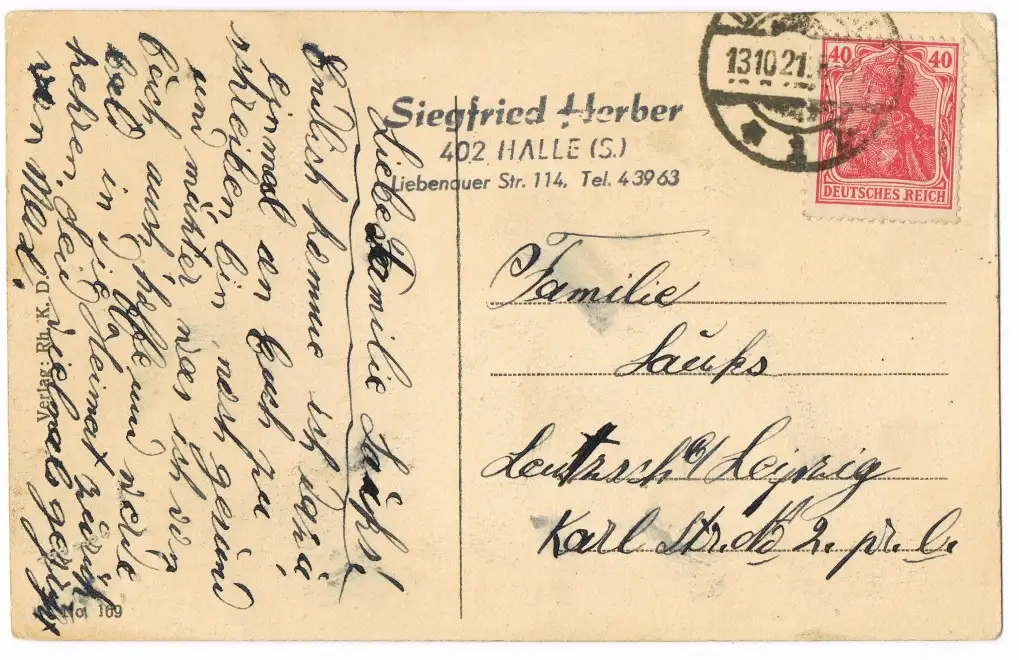 Siegfried Herber
402 HALLE (S.)
Liebenauer Str. 114, Tel. 43963
13.10.21.
1
40 40
DEUTSCHES REICH
Familie
Säups
Leutzsch b/ Leipzig
Karl Str. No 2. pr. l.
Liebe Familie Säups!
Endlich komme ich dazu
einmal an Euch zu
schreiben, bin noch gesund
und munter was ich von
Euch auch hoffe und werde
bald in die Heimat zurück
kehren. Seid vielmals gegrüßt
von Max.
Verlag: Rh. K. D.
No. 169